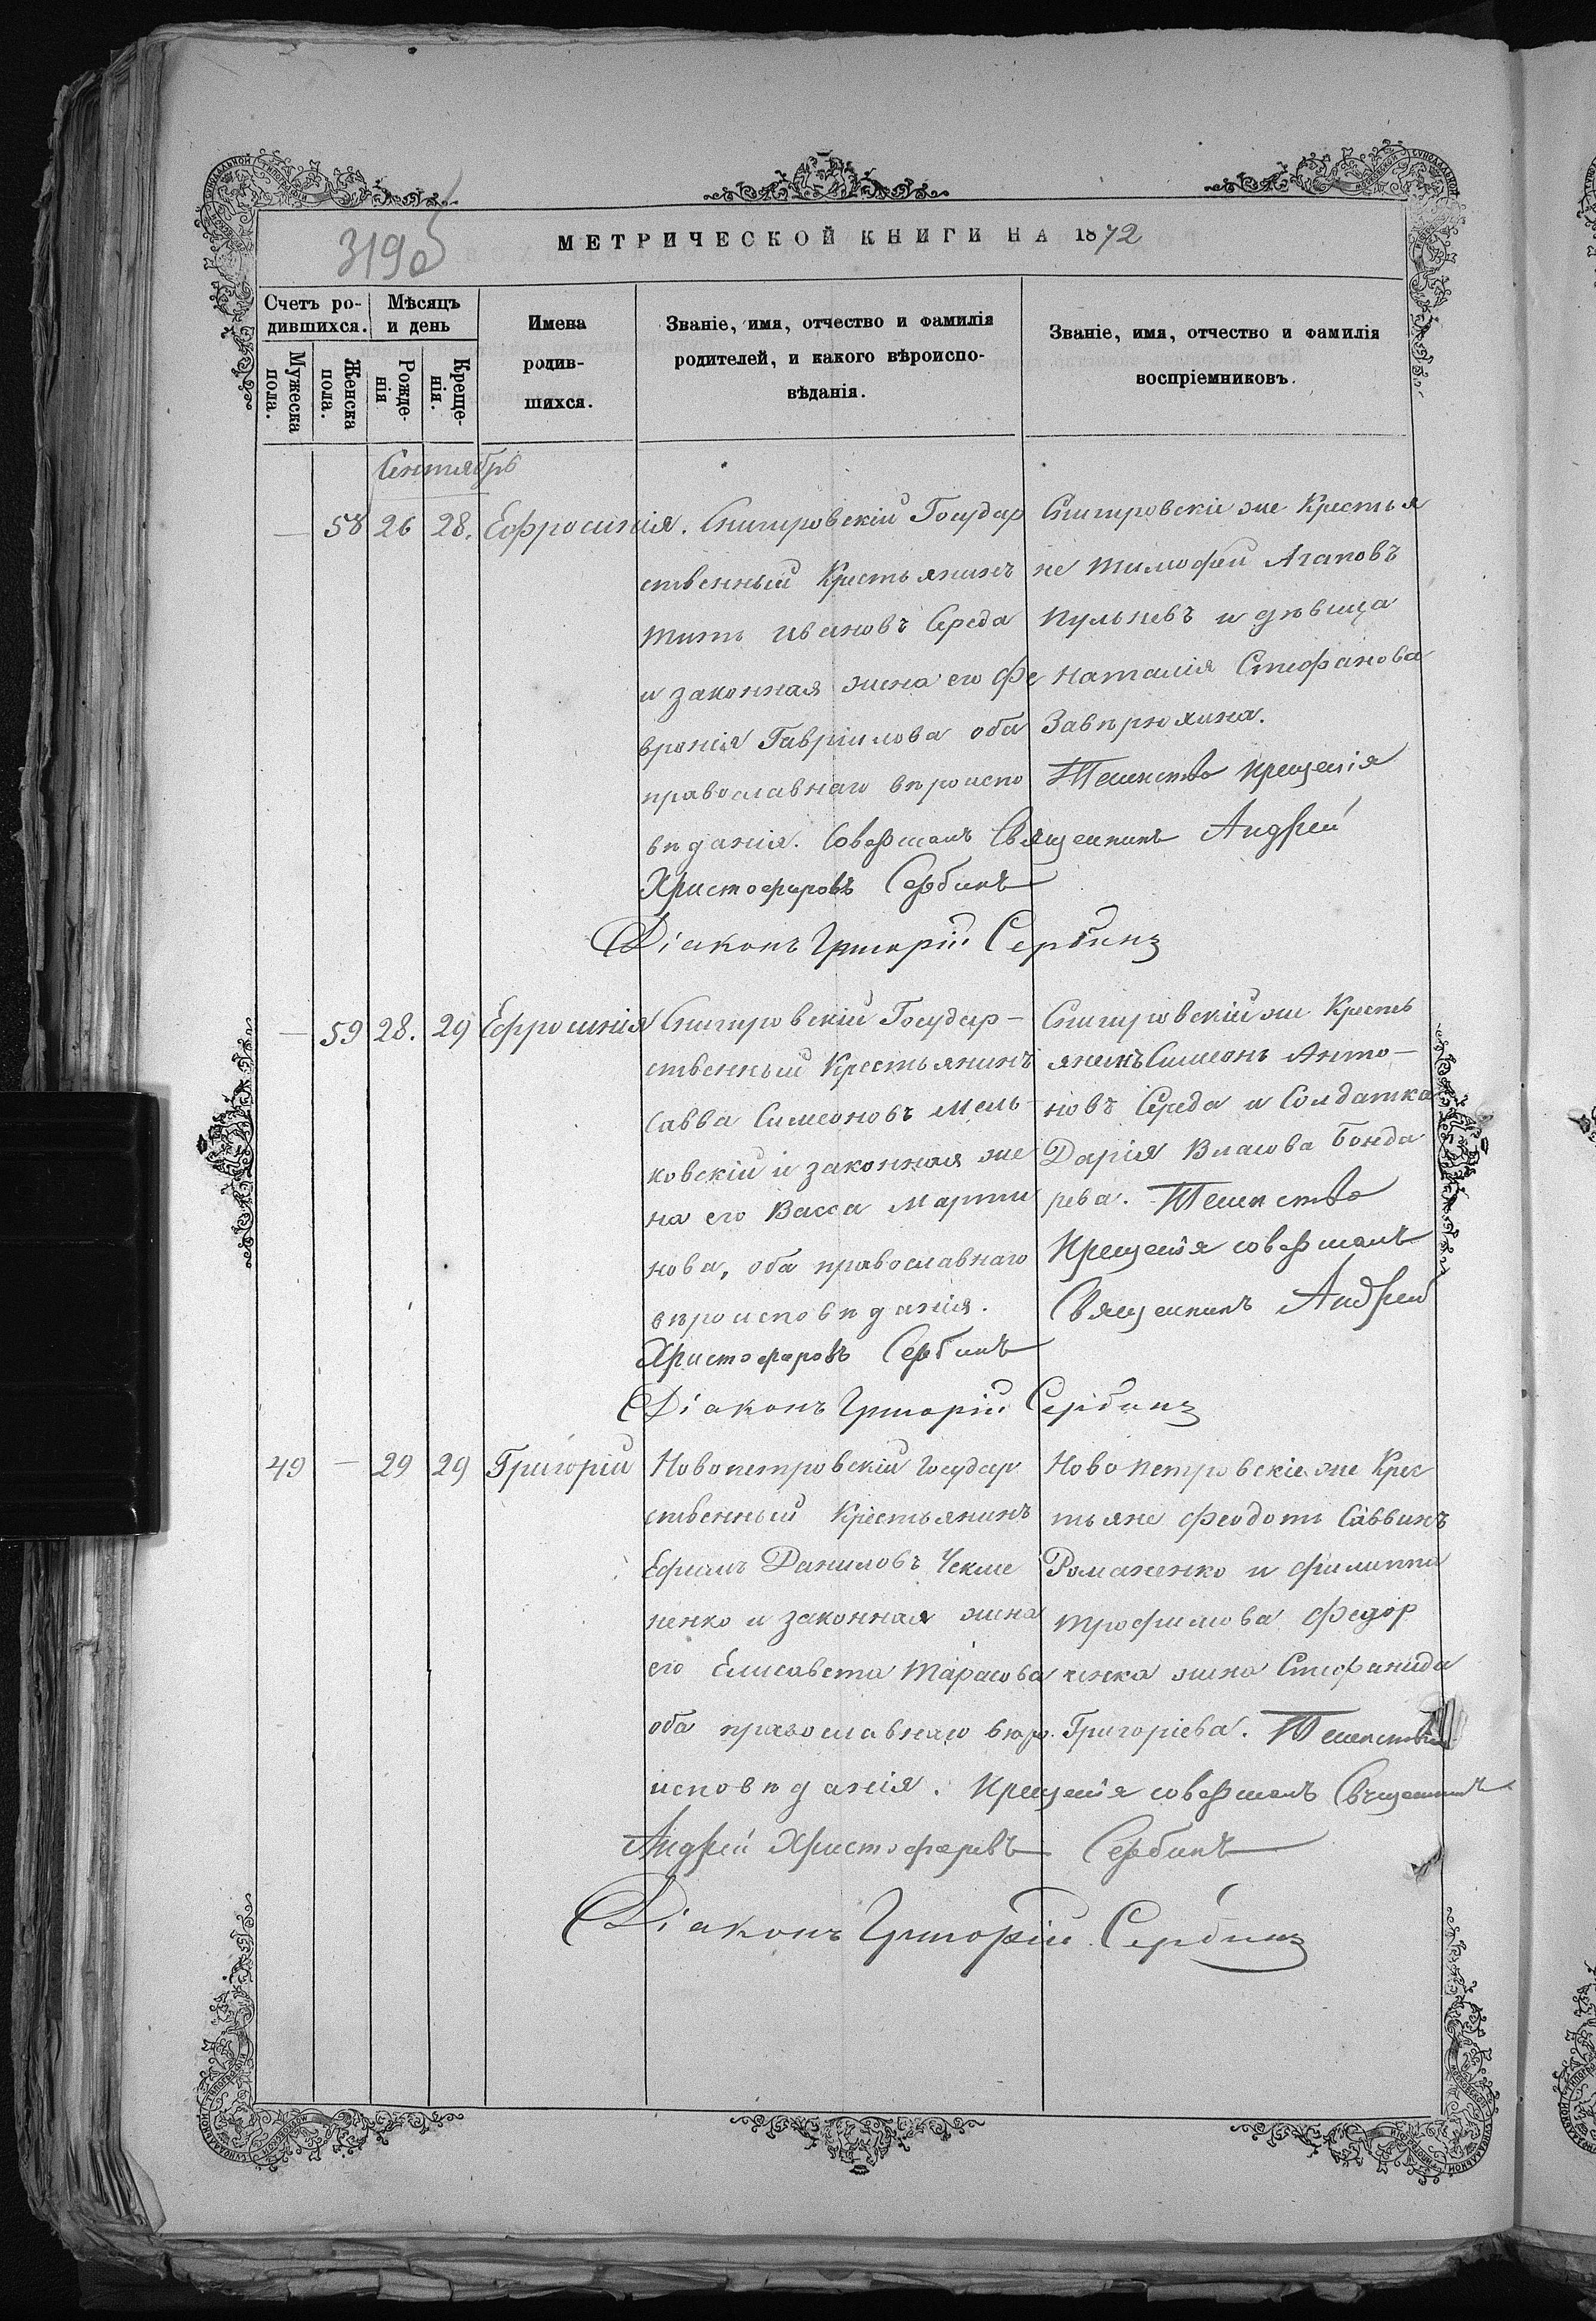 319об
МЕТРИЧЕСКОЙ КНИГИ НА 1872
Счетъ ро-
дившихся.
Мѣсяцъ
и день
Мужеска
пола.
Женска
пола.
Рожде-
нія
Креще-
нія.
Имена
родив-
шихся.
Званіе, имя, отчество и фамилія
родителей, и какого вѣроиспо-
вѣданія.
Званіе, имя, отчество и фамилія
воспріемниковъ.
Сентябрь
— 58 26 28. Ефросинія.
Снигировскій Государ
ственный Крестьянинъ
Титъ Ивановъ Середа
и законная жена его Фе
вронія Гавріилова оба
православнаго вѣроиспо
вѣданія.
Снигировскіе же Крестья
не Тимофей Агаповъ
и дѣвица
Наталія Стефанова
Завѣрюхина.
Таинство Крещенія
Совершалъ Священникъ Андрей
Христофоровъ Сербинъ
Діаконъ Григорій Сербинъ
— 59 28. 29 Ефросинія
Снигировскій Государ-
ственный Крестьянинъ
Савва Симеоновъ Мель-
ковскій и законная же
на его Васса Марти
нова, оба православнаго
вѣроисповѣданія.
Снигировскій же Кресть
янинъ Симеонъ Анто-
новъ Середа и Солдатка
Дарія Власова Бонда
рева. Таинство
Крещенія совершалъ
Священникъ Андрей
Христофоровъ Сербинъ
Діаконъ Григорій Сербинъ
49 — 29 29 Григорій
Новопетровскій Государ
ственный Крестьянинъ
Ефимъ Даниловъ Чекме
ненко и законная жена
его Елисавета Тарасова
оба православнаго вѣро.
исповѣданія.
Новопетровскіе же Крес
тьяне Феодотъ Саввинъ
Романенко и Филиппа
Трофимова Федор
ченка жена Стефанида
Григоріева. Таинство
Крещенія совершалъ Священникъ
Андрей Христофоровъ Сербинъ
Діаконъ Григорій Сербинъ